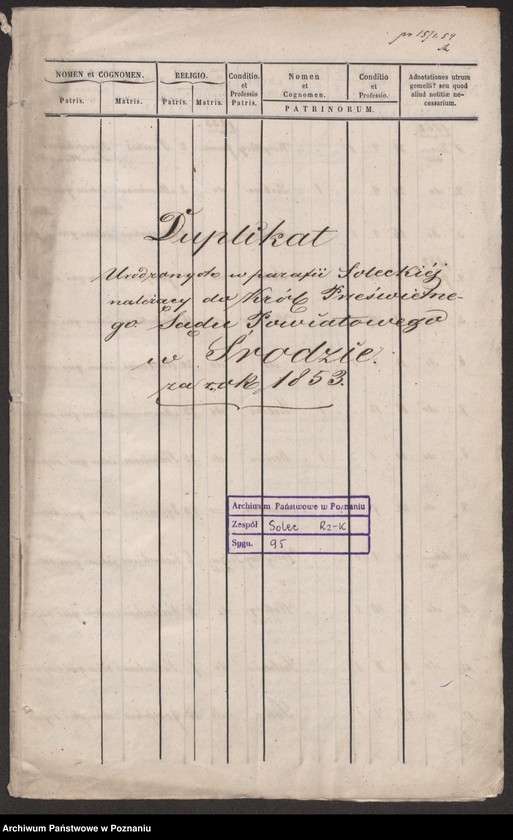 pr 15/1. 54
NOMEN et COGNOMEN. RELIGIO. Conditio. et Professio Patris. Nomen et Cognomen. Conditio et Professio. Adnotationes utrum gemelli? seu quod aliud notitiæ necessarium.
Patris. Matris. Patris. Matris. PATRINORUM.
Duplikat
Urodzonych w parafii Soleckiéj
należący do Król Prześwietne-
go Sądu Powiatowego
w Środzie.
za rok 1853.
Archiwum Państwowe w Poznaniu
Zespół Solec Rz-K
Sygn. 95
Archiwum Państwowe w Poznaniu